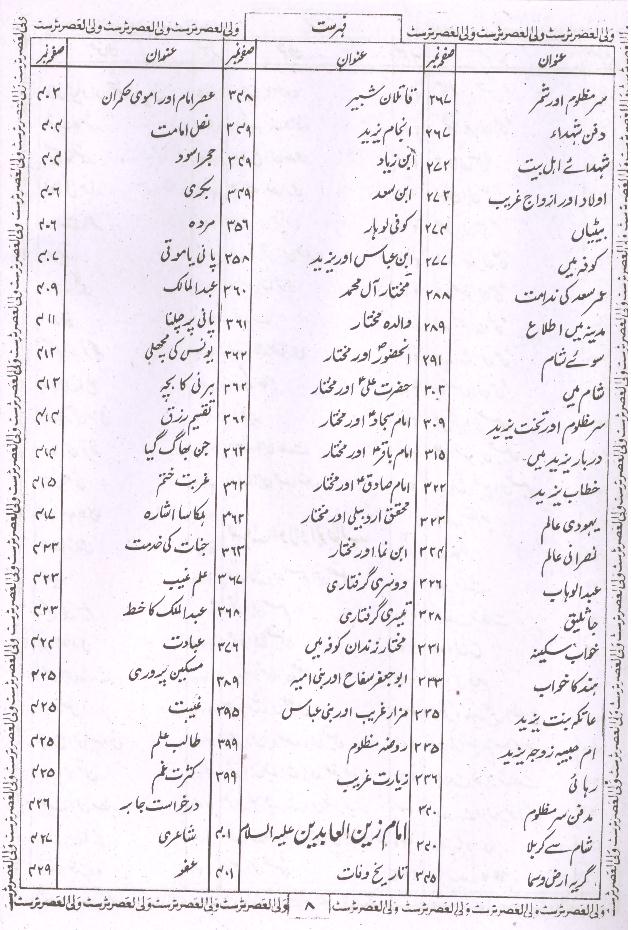 فہرست
عنوان صفحہ نمبر
سر مظلوم اور شمر ۲۶۷
دفن شہداء ۲۶۷
شہدائے اہل بیت ۲۷۲
اولاد اور ازواج غریب ۲۷۳
بیٹیاں ۲۷۴
کوفہ میں ۲۷۷
عمر سعد کی ندامت ۲۸۸
مدینہ میں اطلاع ۲۸۹
سوئے شام ۲۹۱
شام میں ۳۰۳
سر مظلوم اور تخت یزید ۳۰۹
دربار یزید میں ۳۱۵
خطاب یزید ۳۲۲
یہودی عالم ۳۲۳
نصرانی عالم ۳۲۴
عبدالوہاب ۳۲۶
جاثلیق ۳۲۸
خواب سکینہ ۳۳۱
ہند کا خواب ۳۳۳
عاتکہ بنت یزید ۳۳۵
ام حبیبہ زوجہ یزید ۳۳۵
رہائی ۳۳۶
مدفن سر مظلوم ۳۴۰
شام سے کربلا ۳۴۰
گریہ ارض و سما ۳۴۵
عنوان صفحہ نمبر
قاتلان شبیر ۳۴۸
انجام یزید ۳۴۹
ابن زیاد ۳۴۹
ابن سعد ۳۴۹
کوفی لوہار ۳۵۶
ابن عباس اور یزید ۳۵۸
مختار آل محمد ۳۶۰
والدہ مختار ۳۶۱
آنحضورؐ اور مختار ۳۶۲
حضرت علیؑ اور مختار ۳۶۲
امام سجادؑ اور مختار ۳۶۲
امام باقرؑ اور مختار ۳۶۲
امام صادقؑ اور مختار ۳۶۲
محقق اردبیلی اور مختار ۳۶۲
ابن نما اور مختار ۳۶۳
دوسری گرفتاری ۳۶۷
تیسری گرفتاری ۳۶۸
مختار زندان کوفہ میں ۳۷۶
ابو جعفر سفاح اور بنی امیہ ۳۸۹
مزار غریب اور بنی عباس ۳۹۵
روضہ مظلوم ۳۹۹
زیارت غریب ۳۹۹
امام زین العابدین علیہ السلام ۴۰۱
تاریخ وفات ۴۰۱
عنوان صفحہ نمبر
عصر امام اور اموی حکمران ۴۰۳
نص امامت ۴۰۴
حجر اسود ۴۰۴
بکری ۴۰۶
مردہ ۴۰۶
پانی یا موتی ۴۰۷
عبدالمالک ۴۰۹
پانی پر چلنا ۴۱۱
یونس کی مچھلی ۴۱۲
ہرنی کا بچہ ۴۱۳
تقسیم رزق ۴۱۴
جن بھاگ گیا ۴۱۴
غربت ختم ۴۱۵
ہلکا سا اشارہ ۴۱۷
جنات کی خدمت ۴۲۳
علم غیب ۴۲۳
عبدالملک کا خط ۴۲۳
عبادت ۴۲۴
مسکین پروری ۴۲۵
غیبت ۴۲۵
طالب علم ۴۲۵
کثرت غم ۴۲۵
درخواست جابر ۴۲۶
شاعری ۴۲۷
عفو ۴۲۹
ولی العصر ٹرسٹ
۸